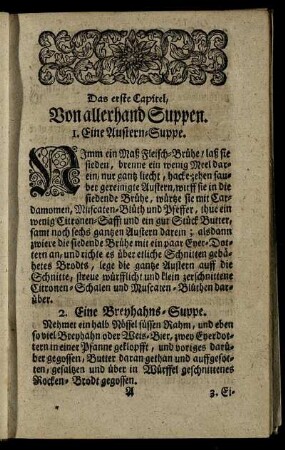 Das erste Capitel,
Von allerhand Suppen.
1. Eine Austern-Suppe.
NJmm ein Maß Fleisch-Brühe/ laß sie
sieden, brenne ein wenig Meel dar-
ein, nur gantz liecht, hacke zehen sau-
ber gereinigte Austern, wirff sie in die
siedende Brühe, würtze sie mit Car-
damomen, Muscaten-Blüth und Pfeffer, thue ein
wenig Citronen-Safft und ein gut Stück Butter,
samt noch sechs gantzen Austern darein; alsdann
zwiere die siedende Brühe mit ein paar Eyer-Dot-
tern an, und richte es über etliche Schnitten gebä-
hetes Brodts, lege die gantze Austern auff die
Schnitte, streue würfflicht und klein zerschnittene
Citronen-Schalen und Muscaten-Blüthen dar-
über.
2. Eine Breyhahns-Suppe.
Nehmet ein halb Nössel süssen Rahm, und eben
so viel Breyhahn oder Weis-Bier, zwey Eyerdot-
tern in einer Pfanne geklopfft, und voriges darü-
ber gegossen, Butter daran gethan und auffgesot-
ten, gesaltzen und über in Würffel geschnittenes
Rocken-Brodt gegossen.
A 3. Ei-